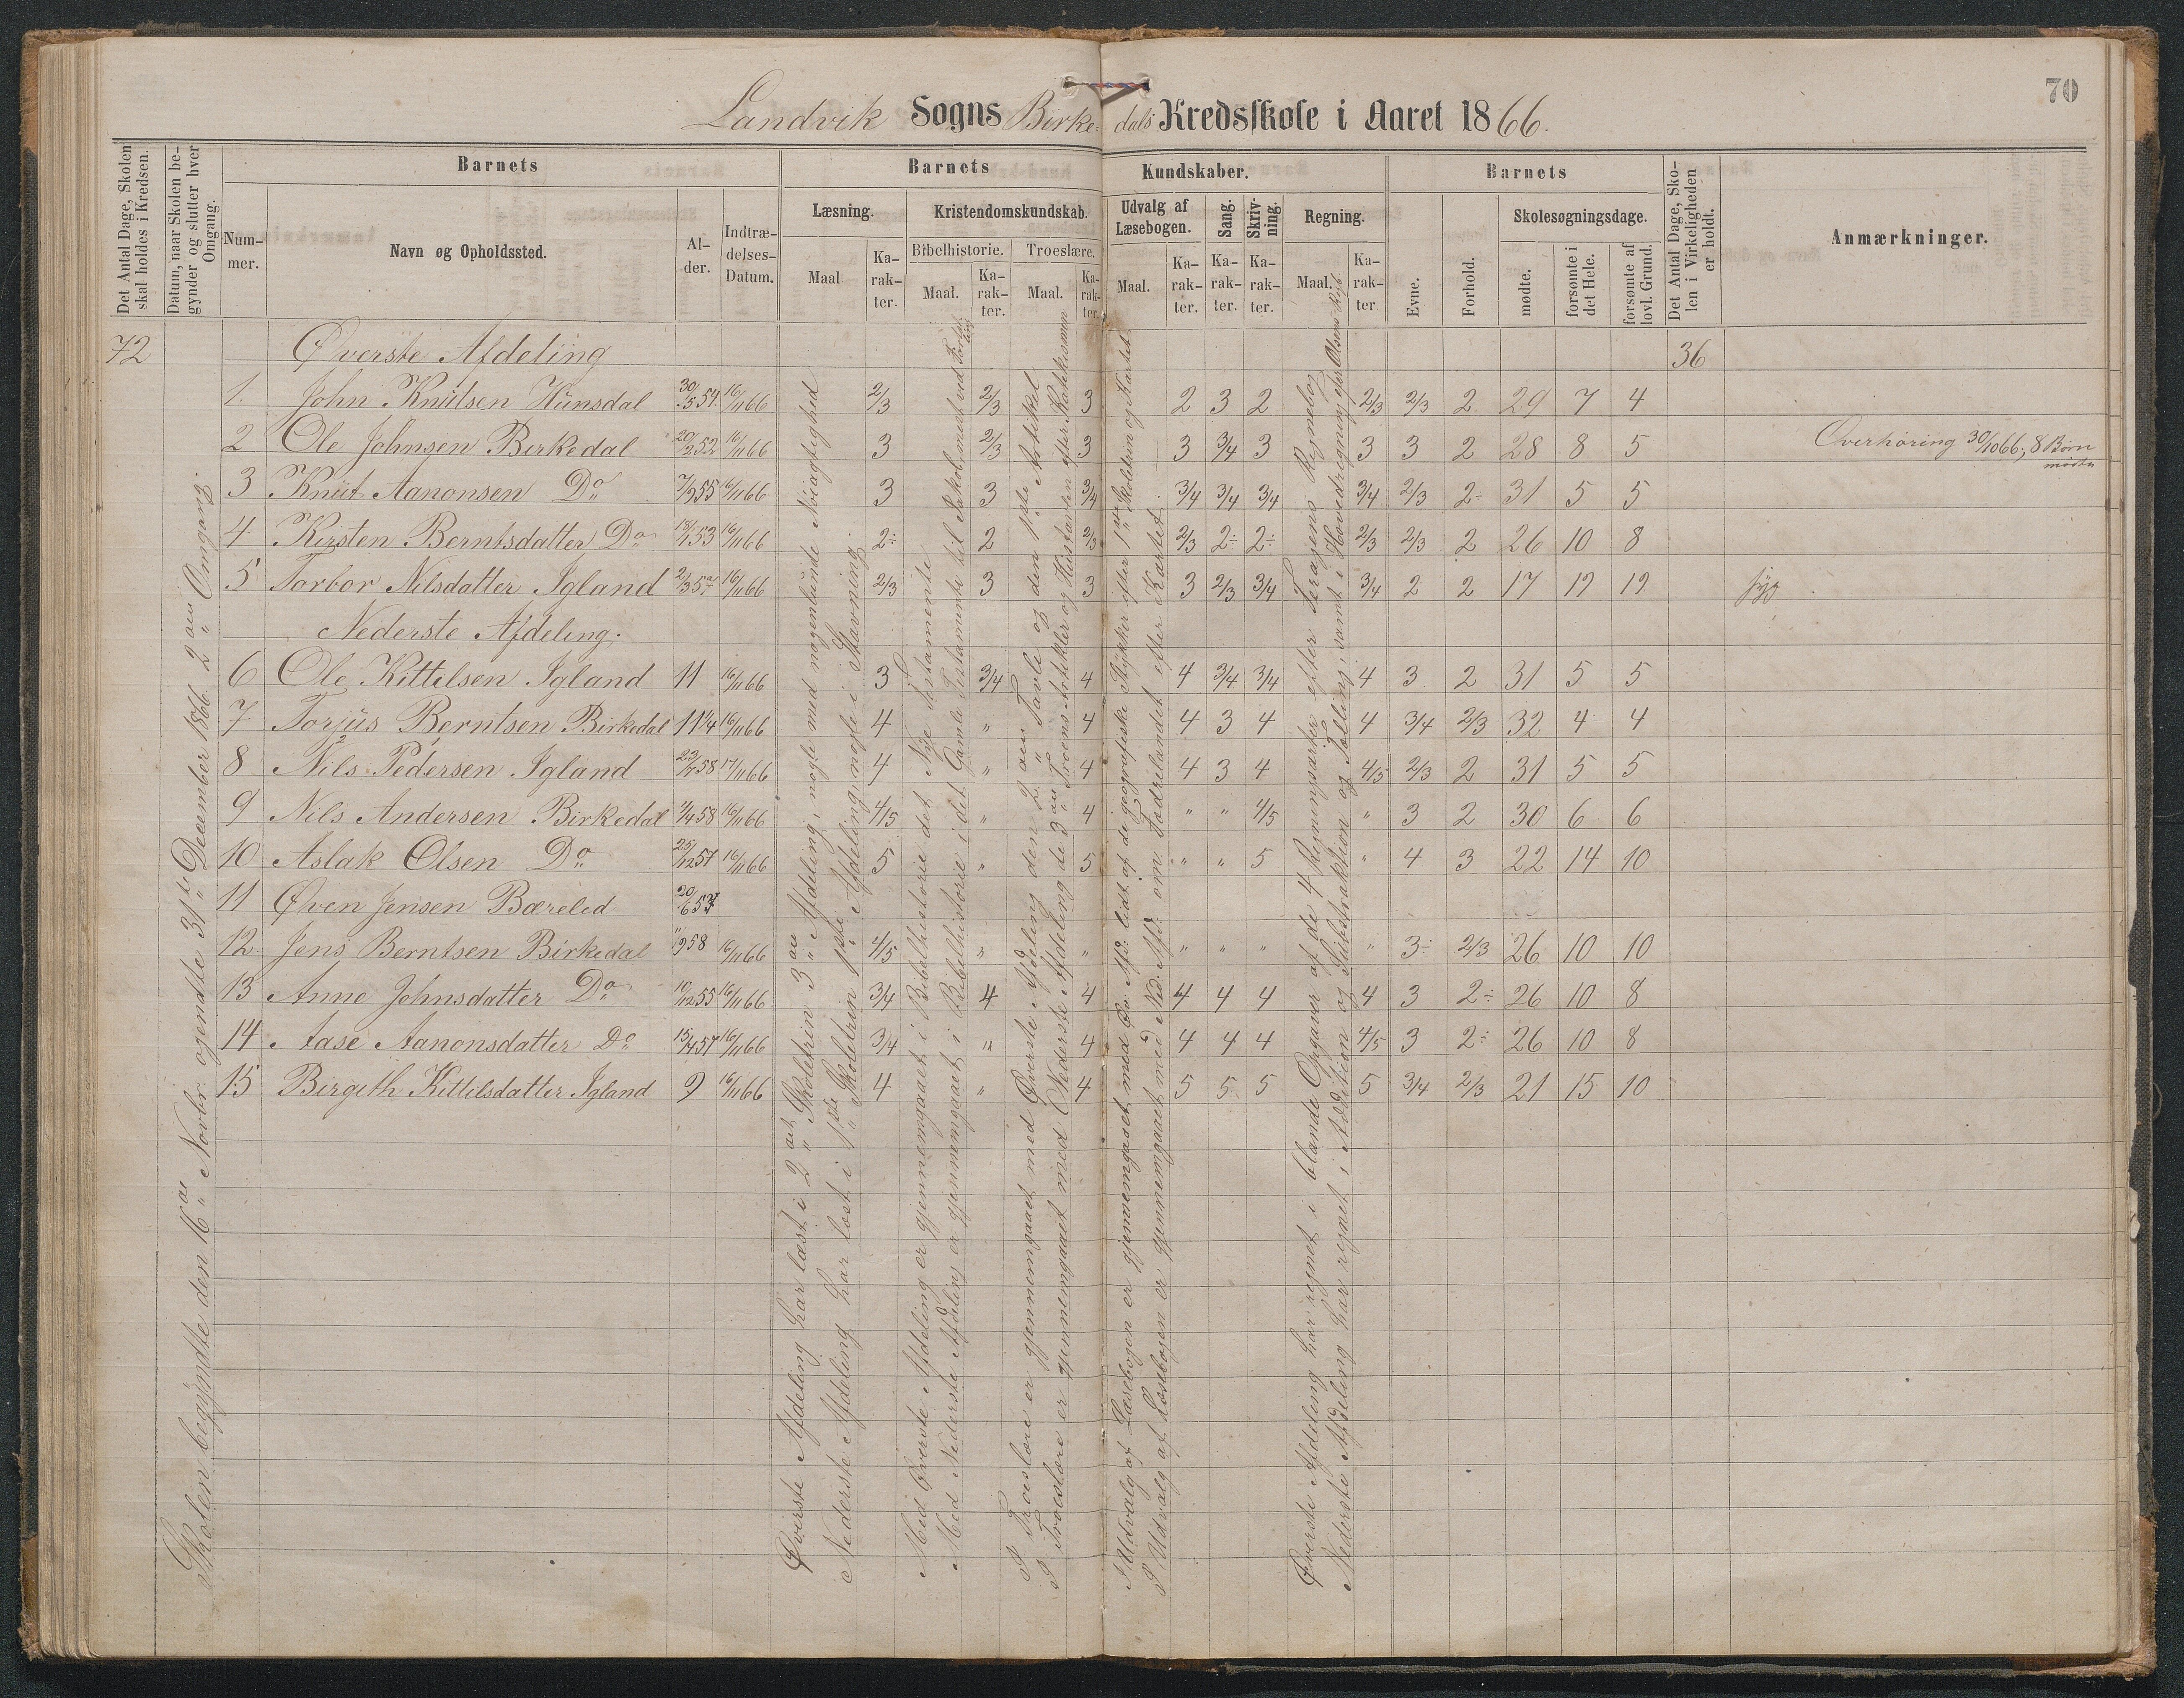 70
Landvik Sogns Birkedals Kredsskole i Aaret 1866.
Det Antal Dage, Skolen skal holdes i Kredsen.
Datum, naar Skolen begynder og slutter hver Omgang.
Barnets
Barnets
Kundskaber.
Barnets
Det Antal Dage, Skolen i Virkeligheden er holdt.
Anmærkninger.
Nummer.
Navn og Opholdssted.
Alder.
Indtrædelses-Datum.
Læsning.
Kristendomskundskab.
Udvalg af Læsebogen.
Sang.
Skrivning.
Regning.
Evne.
Forhold.
Skolesøgningsdage.
Bibelhistorie.
Troeslære.
Maal
Karakter.
Maal.
Karakter.
Maal.
Karakter.
Maal.
Karakter.
Karakter.
Karakter.
Maal.
Karakter
mødte.
forsømte i det Hele.
forsømte af lovl. Grund.
72 Øverste Afdeling 36
1. John Knutsen Hunsdal 30/5 54. 16/11 66 2/3 2/3 3 2 3 2 2/3 2/3 2 29 7 4
2 Ole Johnsen Birkedal 52 16/11 66 3 2/3 3 3 3/4 3 3 3 2 28 8 5 Overhøring 30/10 66, 8 Børn mødte
3 Knut Aanonsen Do 55 16/11 66 3 3 3/4 3/4 3/4 3/4 3/4 2/3 2÷ 31 5 5
4 Kirsten Berntsdatter Do 53 16/11 66 2÷ 2 2/3 2/3 2÷ 2÷ 2/3 2/3 2 26 10 8
5 Torbor Nilsdatter Igland 16/11 66 2/3 3 3 3 2/3 3/4 3/4 2 2 17 19 19 syg
Nederste Afdeling.
6 Ole Kittelsen Igland 11 16/11 66 3 3/4 4 4 3/4 3/4 4 3 2 31 5 5
7 Torjus Berntsen Birkedal 11 1/4 16/11 66 4 " 4 4 3 4 4 3/4 2/3 32 4 4
8 Nils Pedersen Igland 58 17/11 66 4 " 4 4 3 4 4/5 2/3 2 31 5 5
9 Nils Andersen Birkedal 58 16/11 66 4/5 " 4 " " 4/5 " 3 2 30 6 6
10 Aslak Olsen Do 25/12 57 16/11 66 5 " 5 " " 5 " 4 3 22 14 10
11 Øven Jensen Bærelid 20/6
12 Jens Berntsen Birkedal 58 16/11 66 4/5 " " " " " " 3÷ 2/3 26 10 10
13 Anne Johnsdatter Do 10/12 55 16/11 66 3/4 4 4 4 4 4 4 3 2÷ 26 10 8
14 Aase Aanonsdatter Do 57 16/11 66 3/4 " 4 4 4 4 4/5 3 2÷ 26 10 8
15 Birgith Kittilsdatter Igland 9 16/11 66 4 " 4 5 5 5 5 3/4 2/3 21 15 10
Skolen begyndte den 16de Novbr. og endte 31te December 1866 2den Omgang.
Øverste Afdeling har læst i 2det Skoletrin 3die Afdeling, nogle med nogenlunde Nøiagtighed
Nederste Afdeling har læst i 1ste Skoletrin 1ste Afdeling, nogle i Stavning.
Med Øverste Afdeling er gjennemgaaet i Bibelhistorie det Nye Testamente
Med Nederste Afdeling er gjennemgaaet i Bibelhistorie i det Gamle Testamente til Jakob, mest ved
I Troeslære er gjennemgaaet med Øverste Afdeling den 2den Tavle og den 1ste Artikel
I Troeslære er gjennemgaaet med Nederste Afdeling de 3de Troens Artikler og Hustavlen efter Katekismen
I Udvalg af Læsebogen er gjennemgaaet med Øv. Afd. lidt af de geografiske Stykker efter 1ste Skoletrin og Kartet
I Udvalg af Læsebogen er gjennemgaaet med Ned. Afd. om Fædrelandet efter Kartet
Øverste Afdeling har regnet i blande Opgaver af de 4 Regningsarter efter Regnebog
Nederste Afdeling har regnet i Addition og Subtraktion og Tælling, samt i Hovedregning efter Olsens Rgb